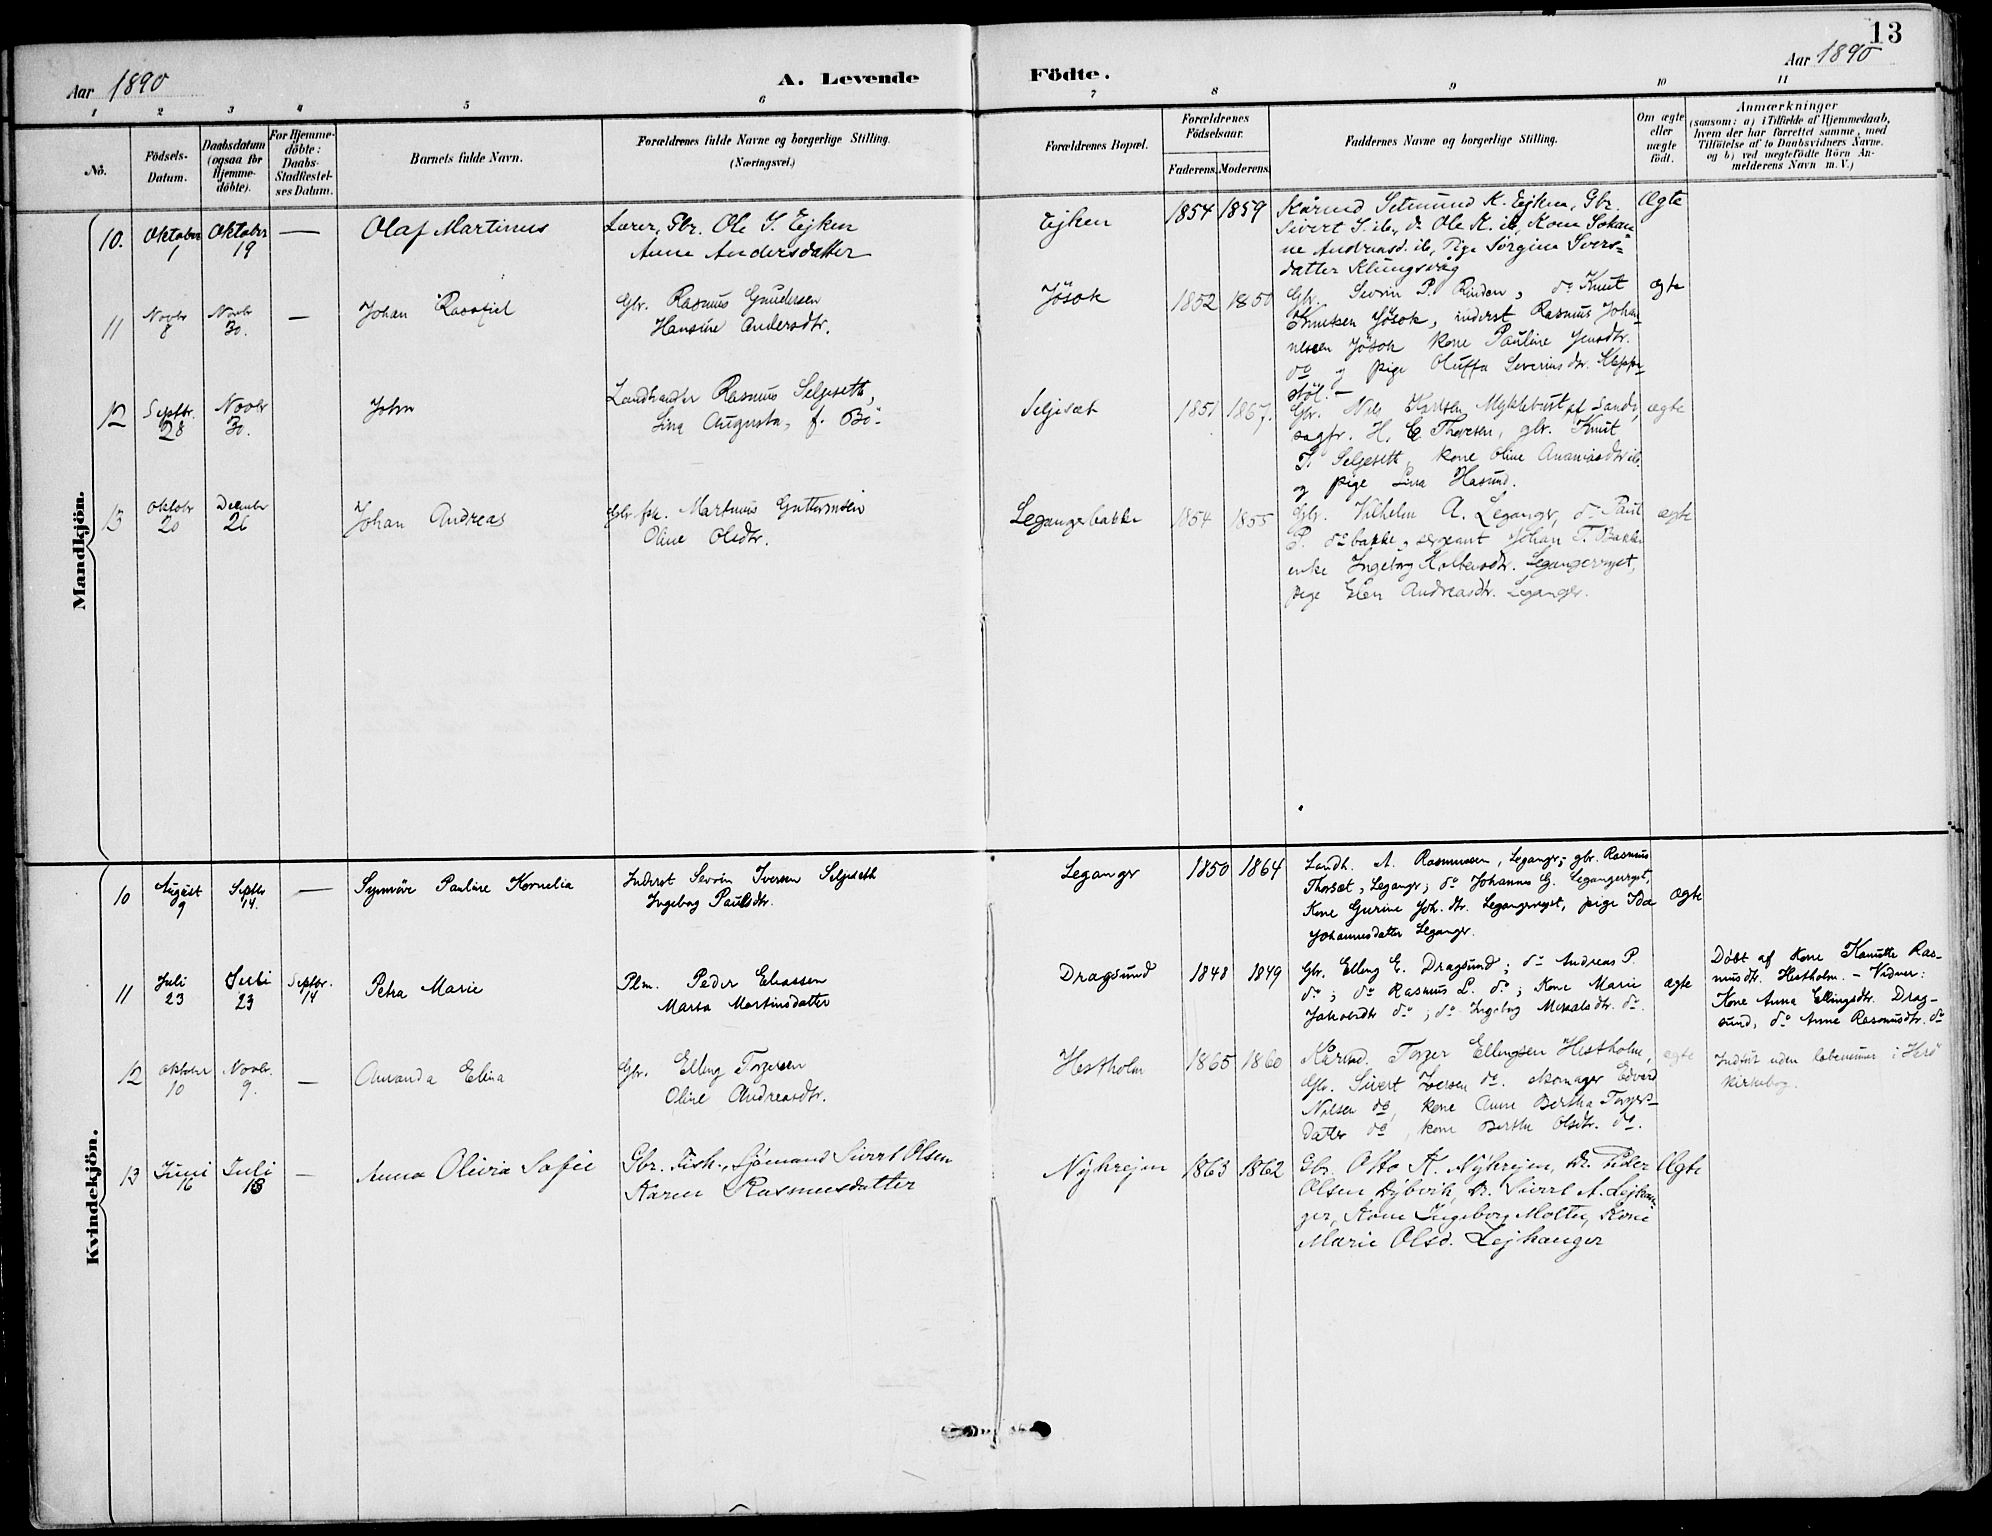 13
Aar 1890
A. Levende Födte.
Aar 1890
1 2 3 4 5 6 7 8 9 10 11
No.
Födsels-
Datum.
Daabsdatum
(ogsaa for
Hjemme-
döbte).
For Hjemme-
döbte:
Daabs-
Stadfæstel-
ses Datum.
Barnets fulde Navn.
Forældrenes fulde Navne og borgerlige Stilling.
(Næringsvei.)
Forældrenes Bopæl.
Forældrenes
Födselsaar.
Faderens. Moderens.
Faddernes Navne og borgerlige Stilling.
Om ægte
eller
uægte
födt.
Anmærkninger
(saasom: a) i Tilfælde af Hjemmedaab,
hvem der har forrettet samme, med
Tilföielse af to Daabsvidners Navne.
og b) ved uægtefödte Börn An-
melderens Navn m. V.)
Mandkjön.
10. Oktober 1
Oktober 19
—
Olaf Martinus
Lærer, Gbr. Ole S. Ejken
Anne Andersdatter
Ejken
1854 1859
Kårmd Setmund K. Ejken, Gbr.
Sivert S. ib., do Ole K. ib, Kone Johan-
ne Andreasd. ib, Pige Sørgine Sivers-
datter Klungsvåg
Ægte
11 Novbr 8
Novbr 30.
—
Johan Rasmus
Gbr. Rasmus Knudsen
Hansine Andersdtr.
Jøsok
1852 1850
Gbr. Sevrin P. Rinden, do Knut
Knutsen Jøsok, inderst Rasmus Johan-
nessen Jøsok kone Pauline Jensdtr.
do og pige Oluffa Severinsdtr. Kleppe-
støl. —
ægte
12 Septbr. 28
Novbr 30.
John
Landhandler Rasmus Selgeseth,
Lina Augusta, f. Bö.
Seljeset
1851 1867.
Gbr. Nils Karlsen Myklebust af Sande,
sagfr. H. C. Thoresen, gbr. Knut
K. Selgeseth, kone Oline Ananiasdtr ib.
og pige Lina Hasund.
ægte
13 Oktobr 20
Decembr 26
Johan Andreas
Gbr. fsk. Martinus Guttormsen
Oline Olsdtr.
Legangerbakke
1854 1855
Gbr. Vilhelm A. Leganger, do Paul
P. do bakke, sergeant Johan T. Bakke
enke Ingeborg Kolbensdtr. Legangerryst,
pige Elen Andreasdtr. Leganger.
ægte
Kvindekjön.
10 August 9
Septbr 14.
—
Synnöve Pauline Kornelia
Inderst Sevrin Iversen Selgeseth
Ingeborg Paulsdtr.
Leganger
1850 1864
Landh. A. Rasmussen, Leganger; gbr. Rasmus
Thorset, Leganger; do Johannes G. Legangerryst,
Kone Gurine Joh. dtr. Legangerryst, pige Ida
Johannesdatter Leganger.
Ægte
11 Juli 23
Juli 23
Septbr. 14
Petra Marie
Plm. Peder Eliassen
Marta Martinsdatter
Dragsund
1848 1849
Gbr. Elling E. Dragsund; do Andreas P.
do; do Rasmus L. do; Kone Marie
Jakobsdtr do; do Ingeborg Mikalsdtr. do.
ægte
Döbt af Kone Hanutte Ras-
musdtr. Hestholm. — Vidner:
Kone Anna Ellingsdtr. Drag-
sund, do Anne Rasmusdtr. do
12 Oktober 10
Novbr. 9.
—
Amanda Elina
Gbr. Elling Torgersen
Oline Andreasdtr.
Hestholm
1865 1860
Kårmd. Torger Ellingsen Hestholm,
Gbr. Sivert Iversen do. skomager Edvard
Nilsen do, kone Anne Bertha Torgers-
datter do, kone Berthe Olsdtr. do.
ægte
Indfört uden löbenummer i Herö
kirkebog.
13 Juni 16
Juli 13
—
Anna Olivia Sofie
Gbr. Fisk., Sjömand Sivert Olsen
Karen Rasmusdatter
Nÿhrejm
1863 1862
Gbr. Otto K. Nÿhrejm, do. Peder
Olsen Dÿbvik, do. Sivert A. Lejhan-
ger, Kone Ingeborg Moltu, Kone
Marie Olsd. Lejhanger
Ægte